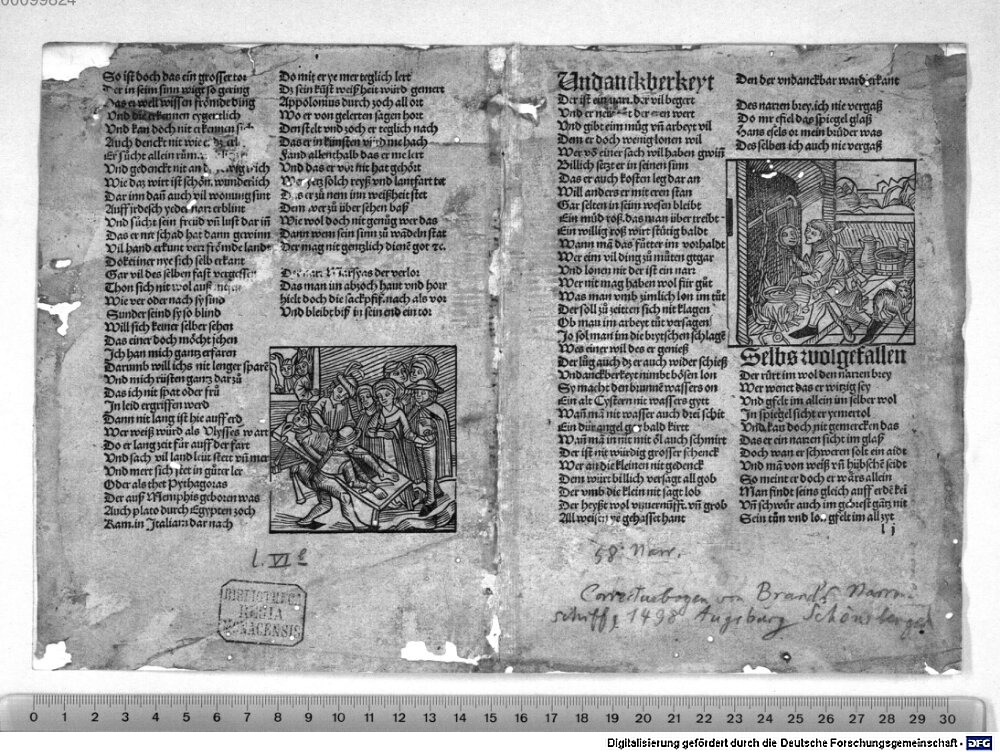 00099824
So ist doch das ein grosser tor
Der in seim sinn wigt so gering
Das er well wissen frömde ding
Vnd die erkennen eygentlich
Vnd kan doch nit erkennen sich
Auch denckt nit wie
Er sücht allein rům
Vnd gedenckt nit an ewig rich
Wie das wirt ist schön, wunderlich
Dar inn dañ auch vil wonung sint
Auff irdesch yeder narr erblint
Vnd sücht sein freud vñ lust dar iñ
Das er me schad hat dann gewinn
Vil hand erkunt verr frömde land
Do keiner nye sich selb erkant
Gar vil des selben fast vergessen
Thon sich nit wol auß
Wie ver oder nach sy sind
Sunder seind sy so blind
Will sich keiner selber sehen
Das einer doch möcht jehen
Ich han mich gantz erfaren
Darumb will ichs nit lenger sparē
Vnd mich rüsten gantz dar zů
Das ich nit spat oder frů
In leid ergriffen werd
Dann nit lang ist hie auff erd
Wer weiß würd als Vlysses wart
Do er lang zeit für auff der fart
Vnd sach vil land leüt stett vñ mer
Vnd mert sich stet in gůter ler
Oder als thet Pythagoras
Der auß Memphis geboren was
Auch plato durch Egypten zoch
Kam in Italiam dar nach
Do mit er ye mer teglich lert
Dz sein küst weißheit würd gemert
Appolonius durch zoch all ort
Wo er von gelerten sagen hort
Den stelt vnd zoch er teglich nach
Das er in künsten würd me hach
Fand allenthalb das er me lert
Vnd das er vor nit hat gehört
Wer yetz solch reyß vnd lantfart tet
Das er zů nem inn weißheit stet
Dem wer zů übersehen baß
Wie wol doch nit genůg wer das
Dann wem sein sinn zů wadeln stat
Der mag nit gentzlich dienē got ꝛc.
Der narr Marsyas der verlor
Das man im abzoch haut vnd horr
Hielt doch die sackpfif, nach als vor
Vnd bleibt biß in sein end ein tor
Vndanckberkeyt
Der ist ein narr, dar vil begert
Vnd er nen der eren wert
Vnd gibt eim müg vñ arbeyt vil
Dem er doch wenig lonen wil
Wer vō einer sach will haben gwiñ
Billich setzt er in seinen sinn
Das er auch kosten leg dar an
Will anders er mit eren stan
Gar selten in seim wesen bleibt
Ein můd roß, das man über treibt
Ein willig roß wirt stütig baldt
Wann mā das fůtter im vorhaldt
Wer eim vil ding zů můten getar
Vnd lonen nit der ist ein narr
Wer nit mag haben wol für gůt
Was man vmb zimlich lon im tůt
Der soll zů zeitten sich nit klagen
Ob man im arbeyt tůt versagen
Jo sol man im die brytschen schlagē
Wes einer wil des er genieß
Der lůg auch dz er auch wider schieß
Vndanckberkeyt nimbt bösen lon
Sy macht den brunnē wassers on
Ein alt Cystern nit wassers gytt
Wañ mā nit wasser auch drei schit
Ein dür angel gar bald kirrt
Wañ mā in nit mit öl auch schmirt
Der ist nit würdig grosser schenck
Wer an die kleinen nit gedenck
Dem würt billich versagt all gob
Der vmb die klein nit sagt lob
Der heyßt wol vnuernüfft vñ grob
All weisen ye gehasset hant
Den der vndanckbar ward erkant
Des narren brey, ich nie vergaß
Do mir gfiel das spiegel glaß
Hans esels or mein brůder was
Des selben ich auch nie vergaß
Selbs wolgefallen
Der rürt im wol den narren brey
Wer wenet das er witzig sey
Vnd gfelt im allein im selber wol
In spiegel sicht er yemertol
Vnd, kan doch nit gemercken das
Das er ein narren sicht im glaß
Doch wan er schweren solt ein aidt
Vnd mā von weiß vñ hübschē seidt
So meint er doch er wärs allein
Man findt seins gleich auff erdē kei
Vñ schwůr auch im gebrest gātz nit
Sein tůn vnd lon gfelt im all zyt
l j
l. VI e
58. Narr.
Correcturbogen von Brand's Narren
schiff, 1498 Augsburg Schönsberger
BIBLIOTHECA
REGIA
MONACENSIS
0 1 2 3 4 5 6 7 8 9 10 11 12 13 14 15 16 17 18 19 20 21 22 23 24 25 26 27 28 29 30
Digitalisierung gefördert durch die Deutsche Forschungsgemeinschaft - DFG